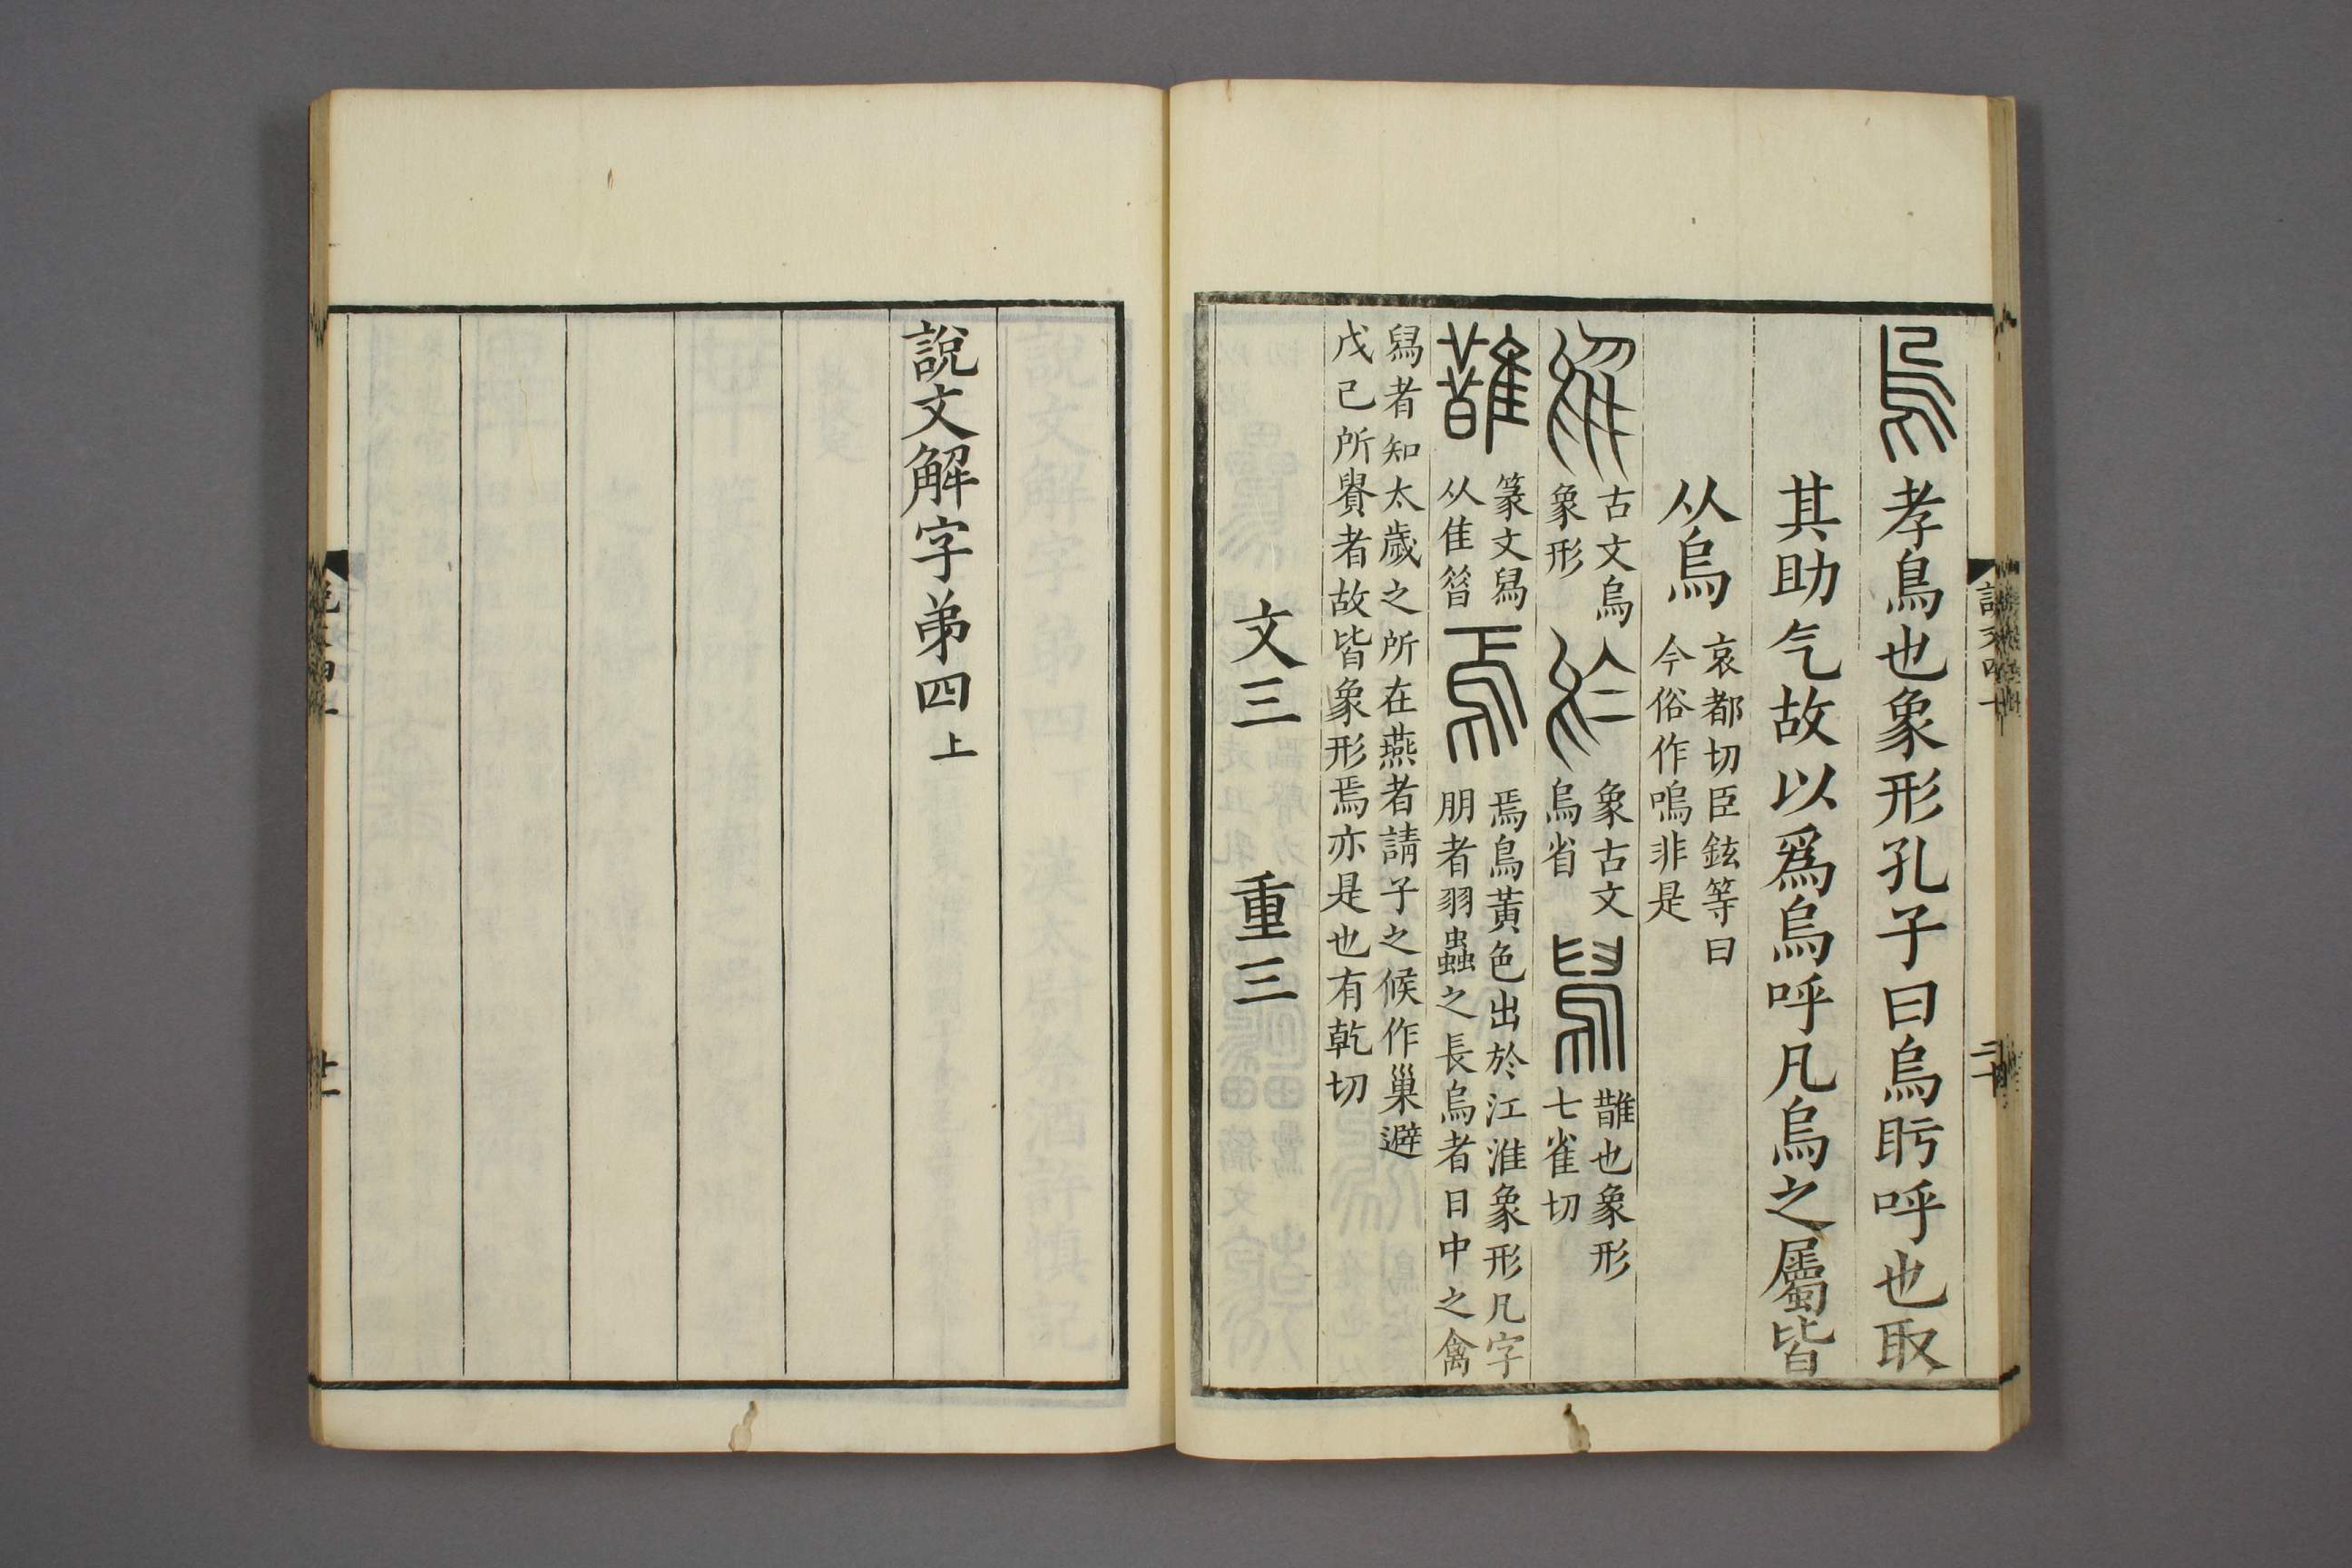 烏孝鳥也象形孔子曰烏盱呼也取
其助气故以爲烏呼凡烏之屬皆
从烏哀都切臣鉉等曰今俗作嗚非是
𦫳古文烏象形於象古文烏省舄䧿也象形七雀切
䧿篆文舄从隹㫺焉焉鳥黃色出於江淮象形凡字朋者羽蟲之長烏者日中之禽
舄者知太歲之所在燕者請子之候作巢避戊己所貴者故皆象形焉亦是也有乾切
文三 重三
說文解字弟四上